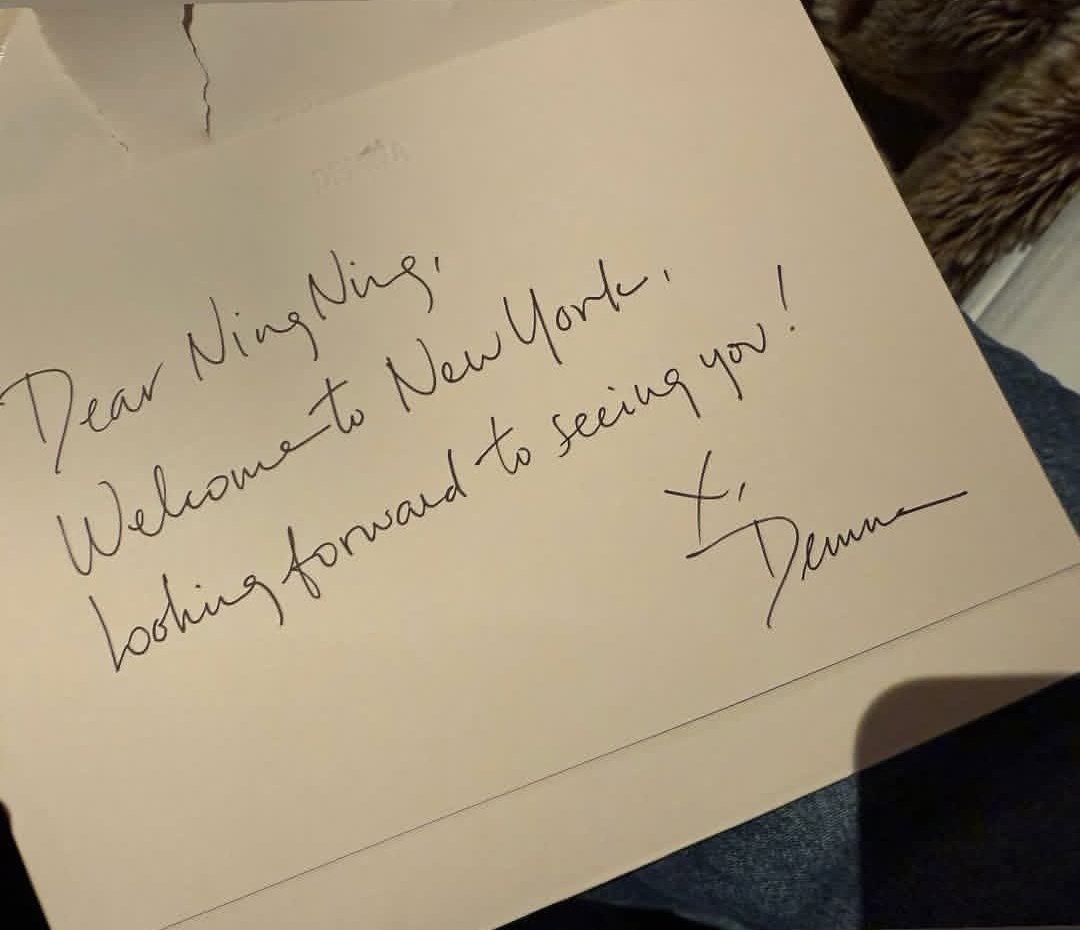 DEMNA
Dear NingNing,
Welcome to New York,
Looking forward to seeing you!
X,
Demna